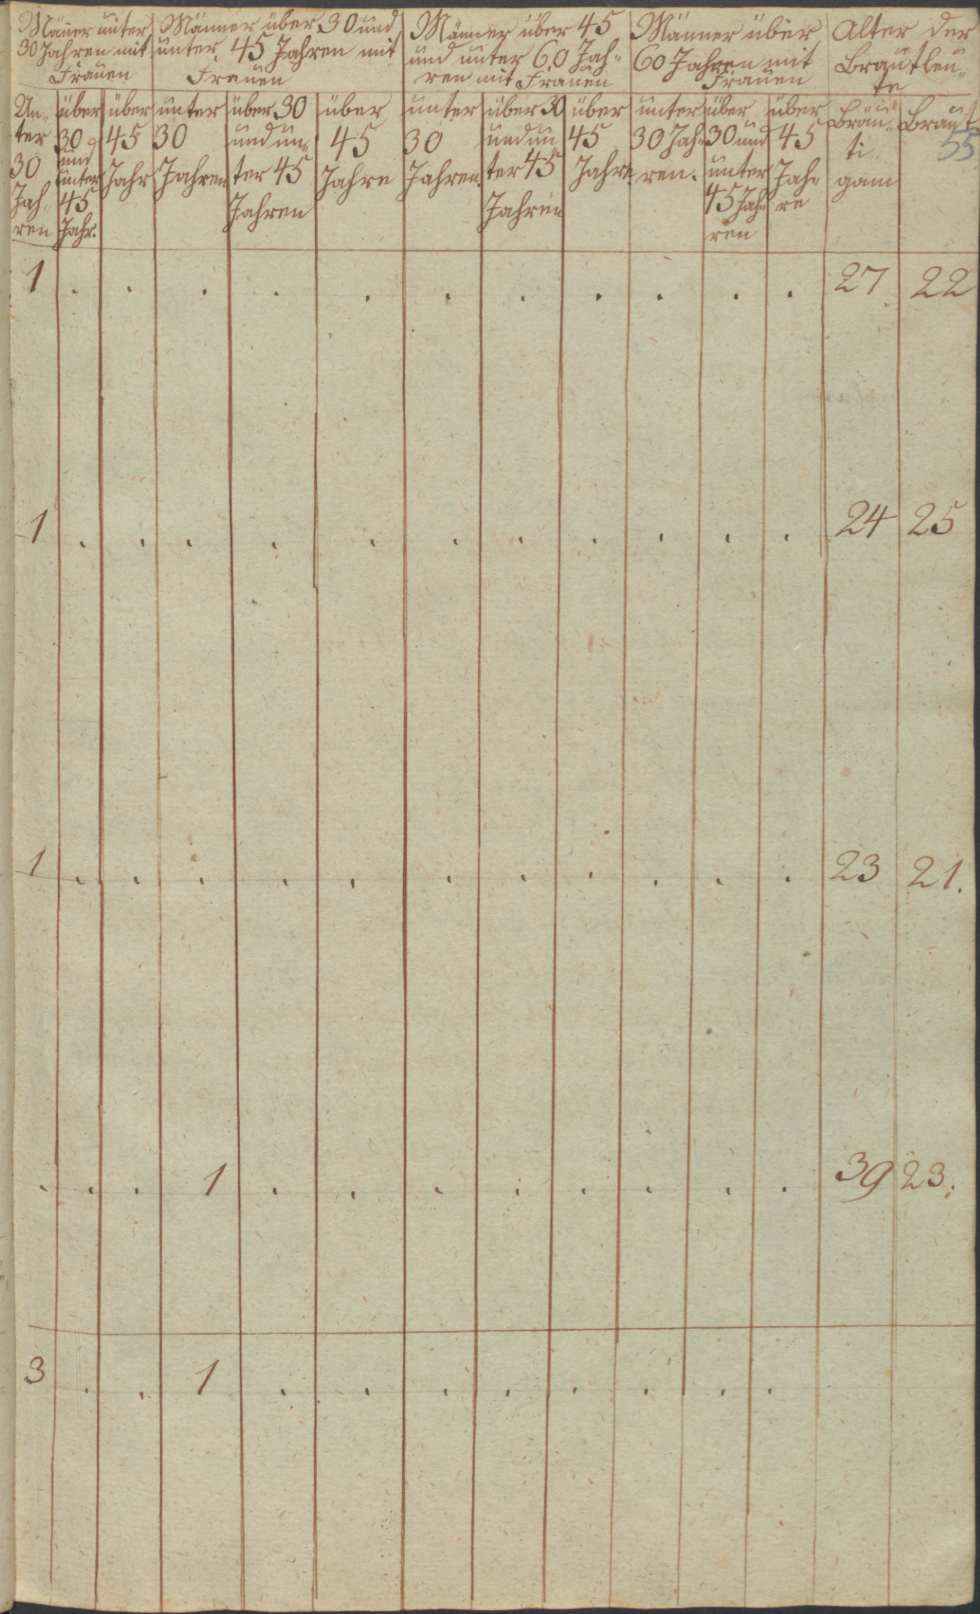 Männer unter
30 Jahren mit
Frauen
Männer über 30 und
unter 45 Jahren mit
Frauen
Männer über 45
und unter 60 Jah-
ren mit Frauen
Männer über
60 Jahren mit
Frauen
Alter der
Brautleu-
te
Un-
ter
30
Jah-
ren
über
30
und
unter
45
Jahr.
über
45
Jahr
unter
30
Jahren
über 30
und un-
ter 45
Jahren
über
45
Jahre
unter
30
Jahren.
über 30
und un
ter 45
Jahren
über
45
Jahre
unter
30 Jah-
ren.
über
30 und
unter
45 Jah-
ren
über
45
Jah-
re
Bräu-
ti-
gam
Braut
55
1 . . . . . . . . . . . 27 22
1 . . . . . . . . . . . 24 25
1 . . . . . . . . . . . 23 21.
. . . 1 . . . . . . . . 39 23.
3 . . 1 . . . . . . . .